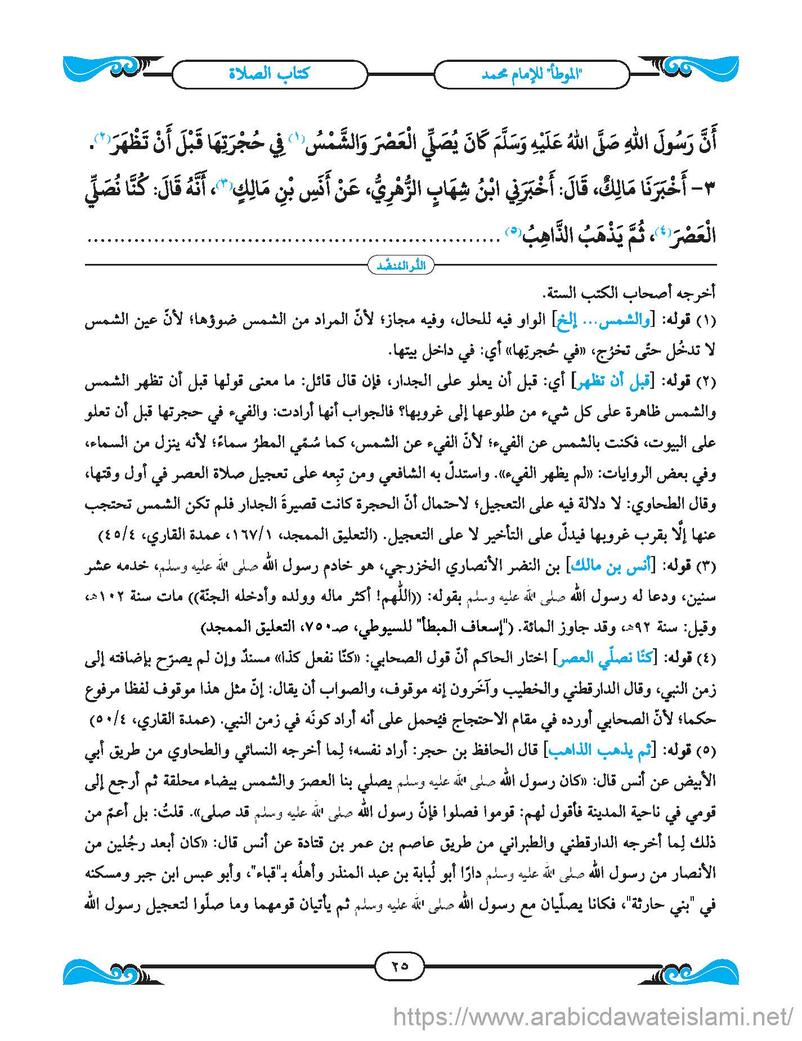 "الموطأ" للإمام محمد
كتاب الصلاة
أَنَّ رَسُولَ اللهِ صَلَّى اللهُ عَلَيْهِ وَسَلَّمَ كَانَ يُصَلِّي الْعَصْرَ وَالشَّمْسُ(١) فِي حُجْرَتِهَا قَبْلَ أَنْ تَظْهَرَ(٢).
٣- أَخْبَرَنَا مَالِكٌ، قَالَ: أَخْبَرَنِي ابْنُ شِهَابٍ الزُّهْرِيُّ، عَنْ أَنَسِ بْنِ مَالِكٍ(٣)، أَنَّهُ قَالَ: كُنَّا نُصَلِّي
الْعَصْرَ(٤)، ثُمَّ يَذْهَبُ الذَّاهِبُ(٥) ..............................................................
الدر المُنضَّد
أخرجه أصحاب الكتب الستة.
(١) قوله: [والشمس... إلخ] الواو فيه للحال، وفيه مجاز؛ لأنّ المراد من الشمس ضوؤها؛ لأنّ عين الشمس
لا تدخُل حتّى تخرُج، «في حُجرتِها» أي: في داخل بيتها.
(٢) قوله: [قبل أن تظهر] أي: قبل أن يعلو على الجدار، فإن قال قائل: ما معنى قولها قبل أن تظهر الشمس
والشمس ظاهرة على كل شيء من طلوعها إلى غروبها؟ فالجواب أنها أرادت: والفيء في حجرتها قبل أن تعلو
على البيوت، فكنت بالشمس عن الفيء؛ لأنّ الفيء عن الشمس، كما سُمّي المطرُ سماءً؛ لأنه ينزل من السماء،
وفي بعض الروايات: «لم يظهر الفيء». واستدلّ به الشافعي ومن تبِعه على تعجيل صلاة العصر في أول وقتها،
وقال الطحاوي: لا دلالة فيه على التعجيل؛ لاحتمال أنّ الحجرة كانت قصيرةَ الجدار فلم تكن الشمس تحتجب
عنها إلَّا بقرب غروبها فيدلّ على التأخير لا على التعجيل. (التعليق الممجد، ١٦٧/١، عمدة القاري، ٤٥/٤)
(٣) قوله: [أنس بن مالك] بن النضر الأنصاري الخزرجي، هو خادم رسول الله صلى الله عليه وسلم، خدمه عشر
سنين، ودعا له رسول الله صلى الله عليه وسلم بقوله: ((اللّهم! أكثر ماله وولده وأدخله الجنّة)) مات سنة ١٠٢هـ،
وقيل: سنة ٩٢هـ، وقد جاوز المائة. ("إسعاف المبطأ" للسيوطي، صـ٧٥٠، التعليق الممجد)
(٤) قوله: [كنّا نصلّي العصر] اختار الحاكم أنّ قول الصحابي: «كنّا نفعل كذا» مسندٌ وإن لم يصرّح بإضافته إلى
زمن النبي، وقال الدارقطني والخطيب وآخَرون إنه موقوف، والصواب أن يقال: إنّ مثل هذا موقوف لفظا مرفوع
حكما؛ لأنّ الصحابي أورده في مقام الاحتجاج فيُحمل على أنه أراد كونَه في زمن النبي. (عمدة القاري، ٥٠/٤)
(٥) قوله: [ثم يذهب الذاهب] قال الحافظ بن حجر: أراد نفسه؛ لِما أخرجه النسائي والطحاوي من طريق أبي
الأبيض عن أنس قال: «كان رسول الله صلى الله عليه وسلم يصلي بنا العصرَ والشمس بيضاء محلقة ثم أرجع إلى
قومي في ناحية المدينة فأقول لهم: قوموا فصلوا فإنّ رسول الله صلى الله عليه وسلم قد صلى». قلتُ: بل أعمّ من
ذلك لِما أخرجه الدارقطني والطبراني من طريق عاصم بن عمر بن قتادة عن أنس قال: «كان أبعد رجُلين من
الأنصار من رسول الله صلى الله عليه وسلم دارًا أبو لُبابة بن عبد المنذر وأهلُه بـ"قباء"، وأبو عبس ابن جبر ومسكنه
في "بني حارثة"، فكانا يصلّيان مع رسول الله صلى الله عليه وسلم ثم يأتيان قومهما وما صلّوا لتعجيل رسول الله
٢٥
https://www.arabicdawateislami.net/